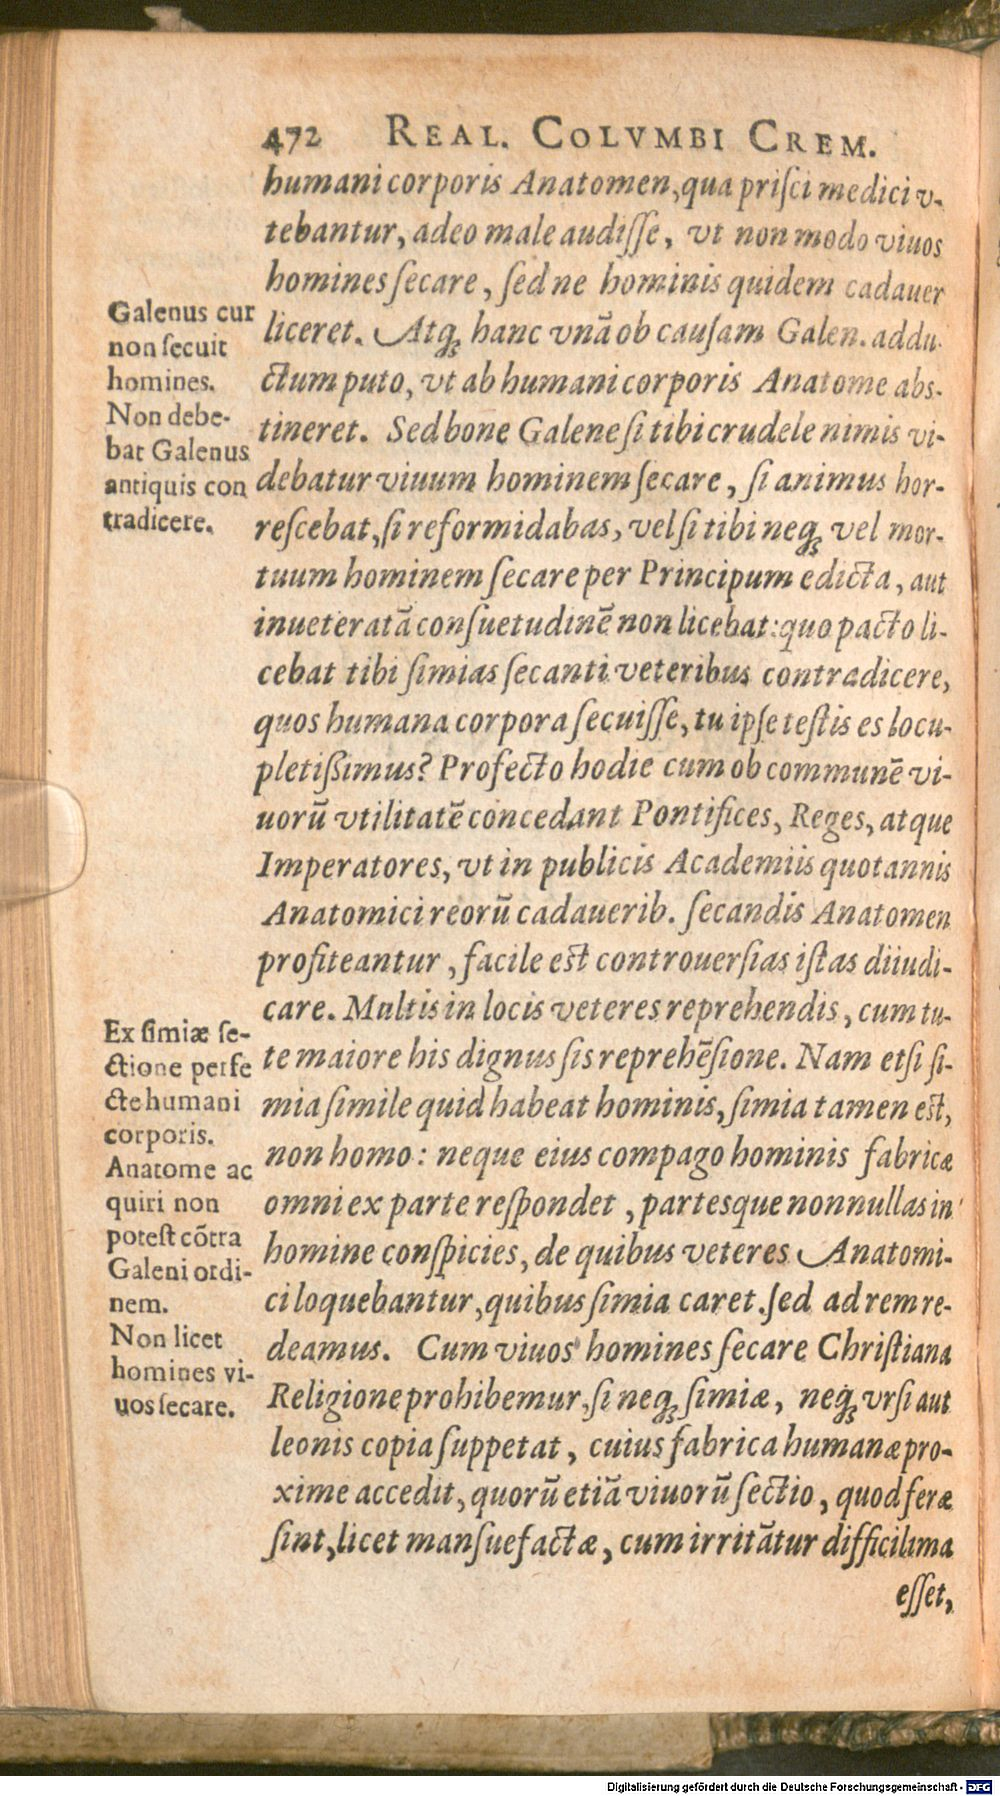 472 REAL. COLVMBI CREM.
humani corporis Anatomen, qua prisci medici v-
tebantur, adeo male audisse, vt non modo viuos
homines secare, sed ne hominis quidem cadauer
liceret. Atq; hanc vnã ob causam Galen. addu-
ctum puto, vt ab humani corporis Anatome abs-
tineret. Sed bone Galene si tibi crudele nimis vi-
debatur viuum hominem secare, si animus hor-
rescebat, si reformidabas, vel si tibi neq; vel mor-
tuum hominem secare per Principum edicta, aut
inueteratã consuetudinẽ non licebat: quo pacto li-
cebat tibi simias secanti veteribus contradicere,
quos humana corpora secuisse, tu ipse testis es locu-
pletißimus? Profecto hodie cum ob communẽ vi-
uorũ vtilitatẽ concedant Pontifices, Reges, atque
Imperatores, vt in publicis Academiis quotannis
Anatomici reorũ cadauerib. secandis Anatomen
profiteantur, facile est controuersias istas diiudi-
care. Multis in locis veteres reprehendis, cum tu-
te maiore his dignus sis reprehẽsione. Nam etsi si-
mia simile quid habeat hominis, simia tamen est,
non homo: neque eius compago hominis fabricæ
omni ex parte respondet, partesque nonnullas in
homine conspicies, de quibus veteres Anatomi-
ci loquebantur, quibus simia caret. sed ad rem re-
deamus. Cum viuos homines secare Christiana
Religione prohibemur, si neq; simiæ, neq; vrsi aut
leonis copia suppetat, cuius fabrica humanæ pro-
xime accedit, quorũ etiã viuorũ sectio, quod feræ
sint, licet mansuefactæ, cum irritãtur difficilima
esset,
Galenus cur
non secuit
homines.
Non debe-
bat Galenus
antiquis con
tradicere.
Ex simiæ se-
ctione perfe
cte humani
corporis.
Anatome ac
quiri non
potest cõtra
Galeni ordi-
nem.
Non licet
homines vi-
uos secare.
Digitalisierung gefördert durch die Deutsche Forschungsgemeinschaft - DFG